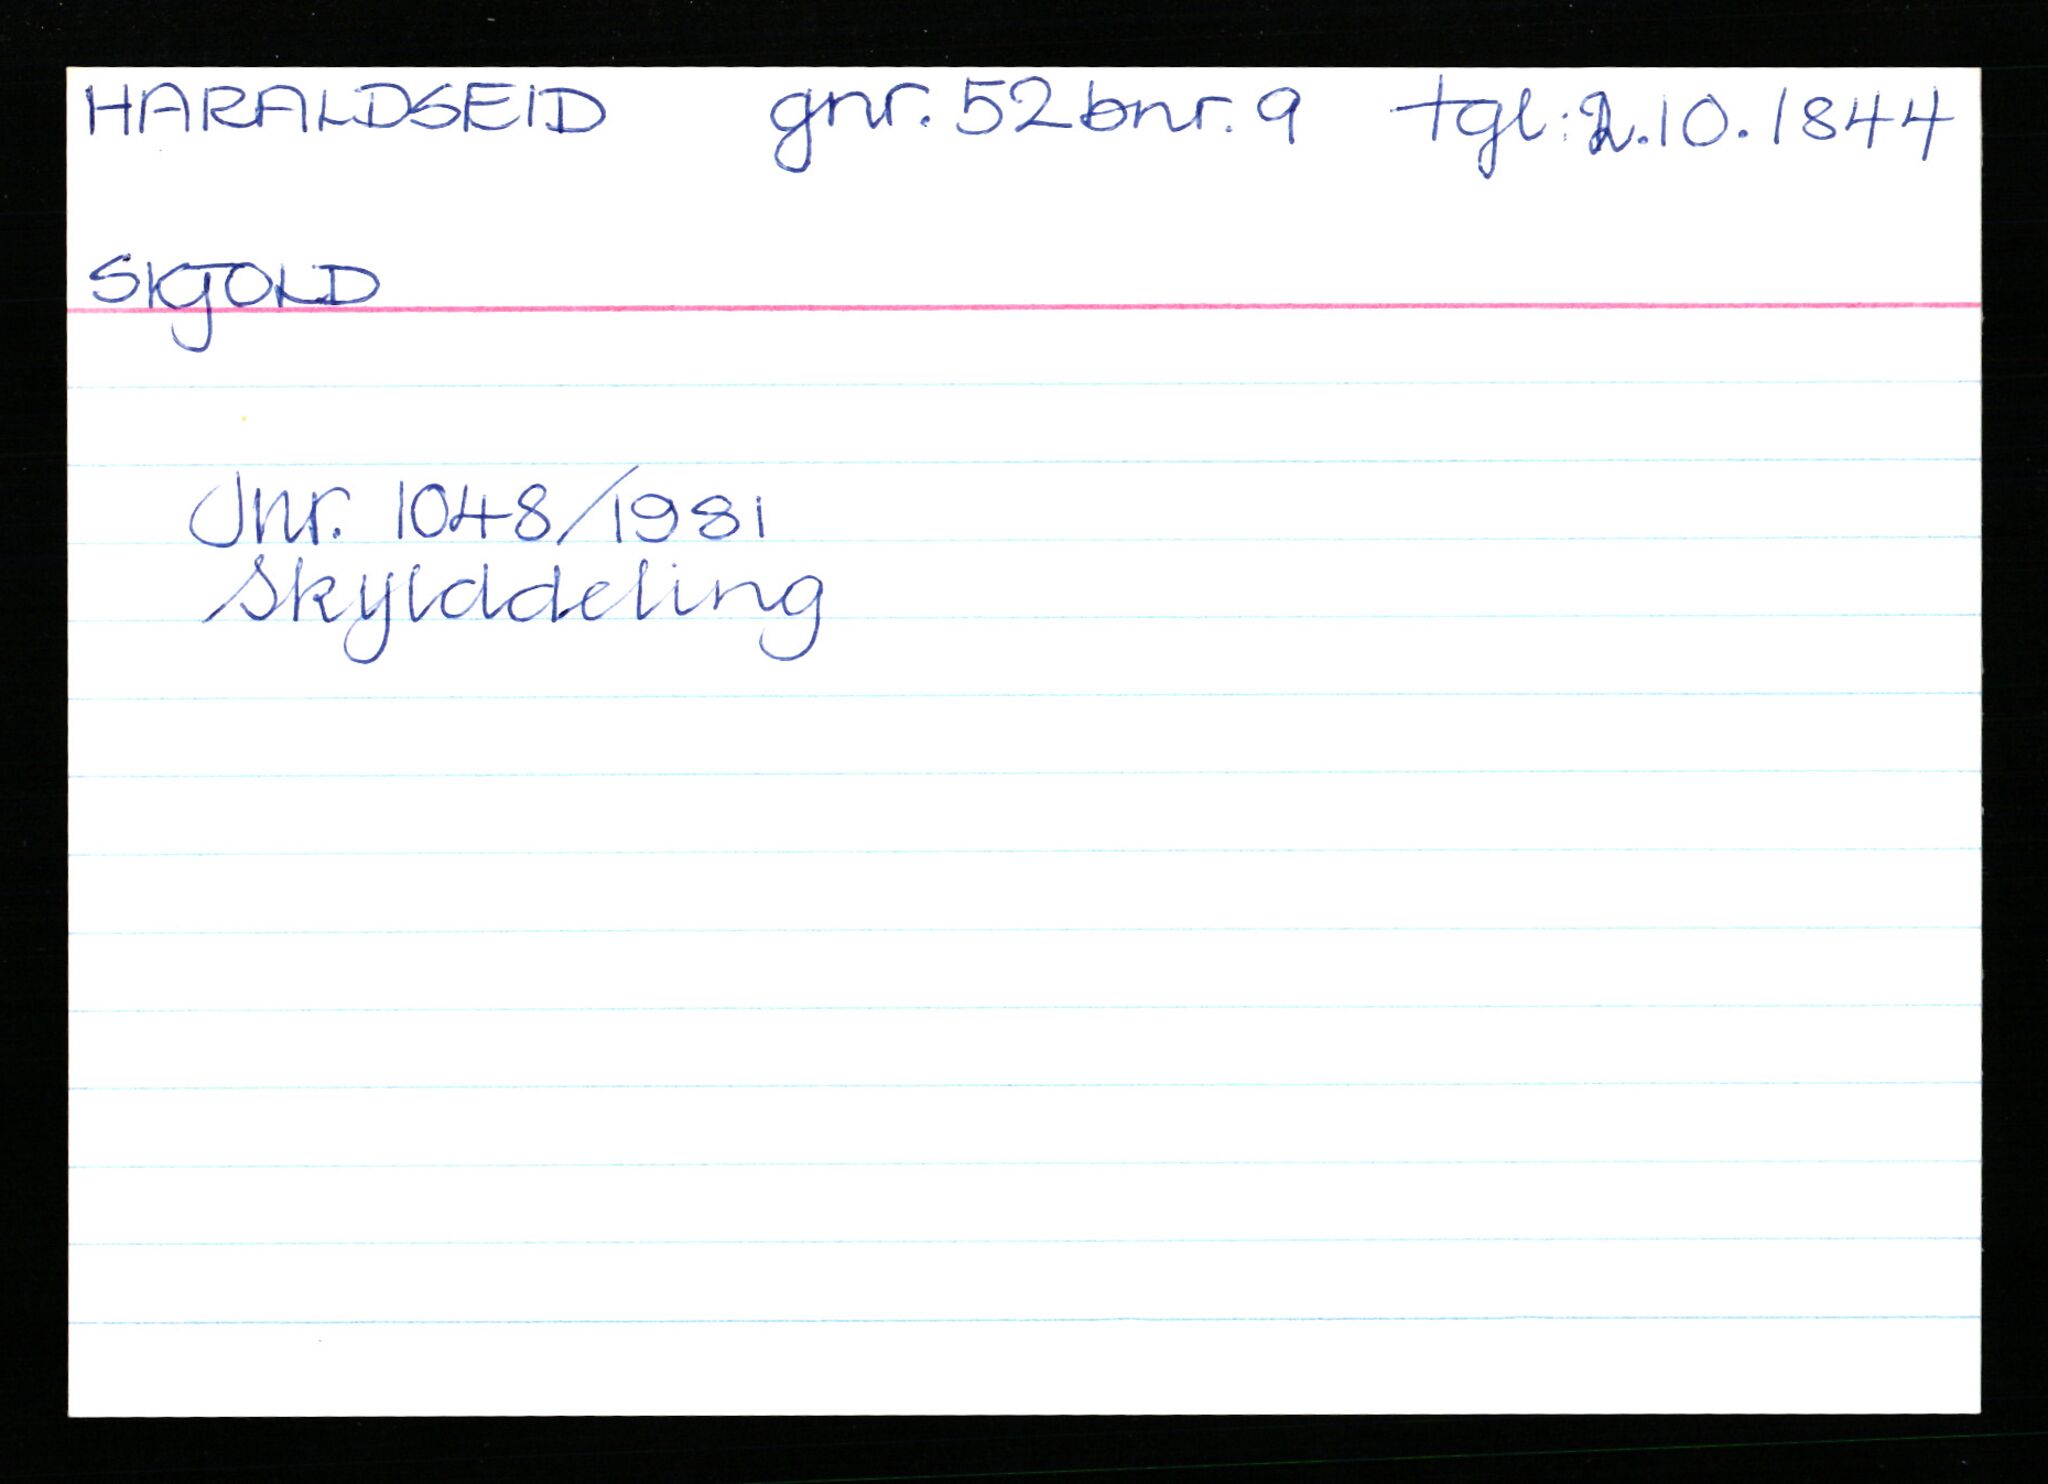 HARALDSEID gnr. 52 bnr. 9 tgl: 2.10.1844
SKJOLD
Jnr. 1048/1981
Skylddeling